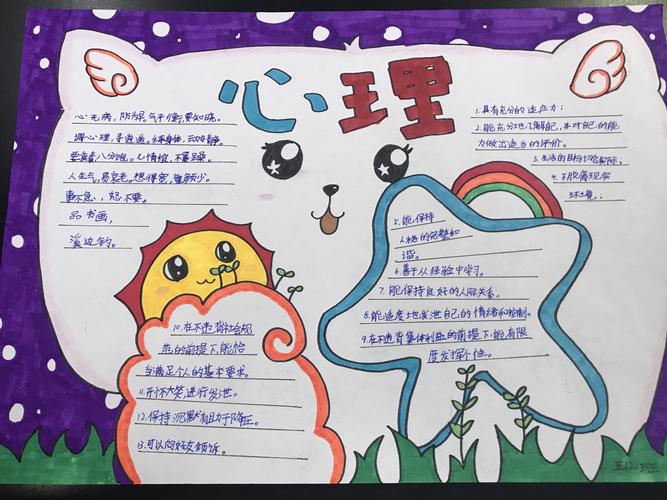 心理
心无病，防为早，气平衡，要知晓。
调心理，寻逍遥。练身体，动与静。
要食素，八分饱。七情控，不暴躁。
人生气，易衰老。想得宽，童颜少。
事不急，怒不要。
品书画，
溪边钓。
1.具有充分的适应力；
2.能充分地了解自己，并对自己的能
力做出适当的评价。
3.生活的目标切合实际；
4.不脱离现实
环境；
5.能保持
人格的完整和
谐。
6.善于从经验中学习。
7.能保持良好的人际关系。
8.能适度地发泄自己的情绪和控制。
9.在不违背集体利益的前提下，能有限
度发挥个性。
10.在不违背社会规
范的前提下，能恰
当满足个人的基本要求。
11.开怀大笑，进行发泄。
12.保持沉默有助于降压。
13.可以向好友倾诉。